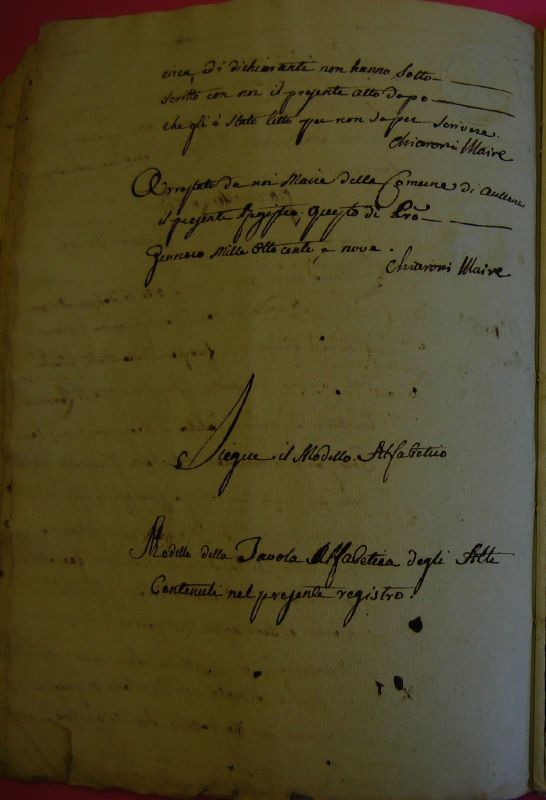 circa, ed i dichiaranti non hanno sotto-
scritto con noi il presente atto dopo
che gli è stato letto per non saper scrivere.
Chiaroni Maire
Arrestato da noi Maire della Comune di Aullene
il presente Registro, questo dì Pr̃o
Gennaro Mille Otto cento, e nove.
Chiaroni Maire
Siegue il Modello Alfabetico
Modello della Tavola Alfabetica degli Atti
Contenuti nel presente registro.